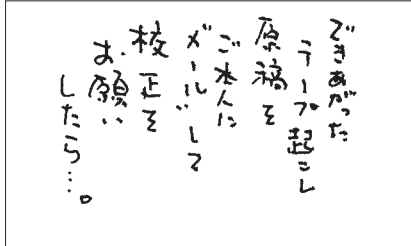 できあがった
テープ起こし
原稿を
ご本人に
メールして
校正を
お願い
したら…。